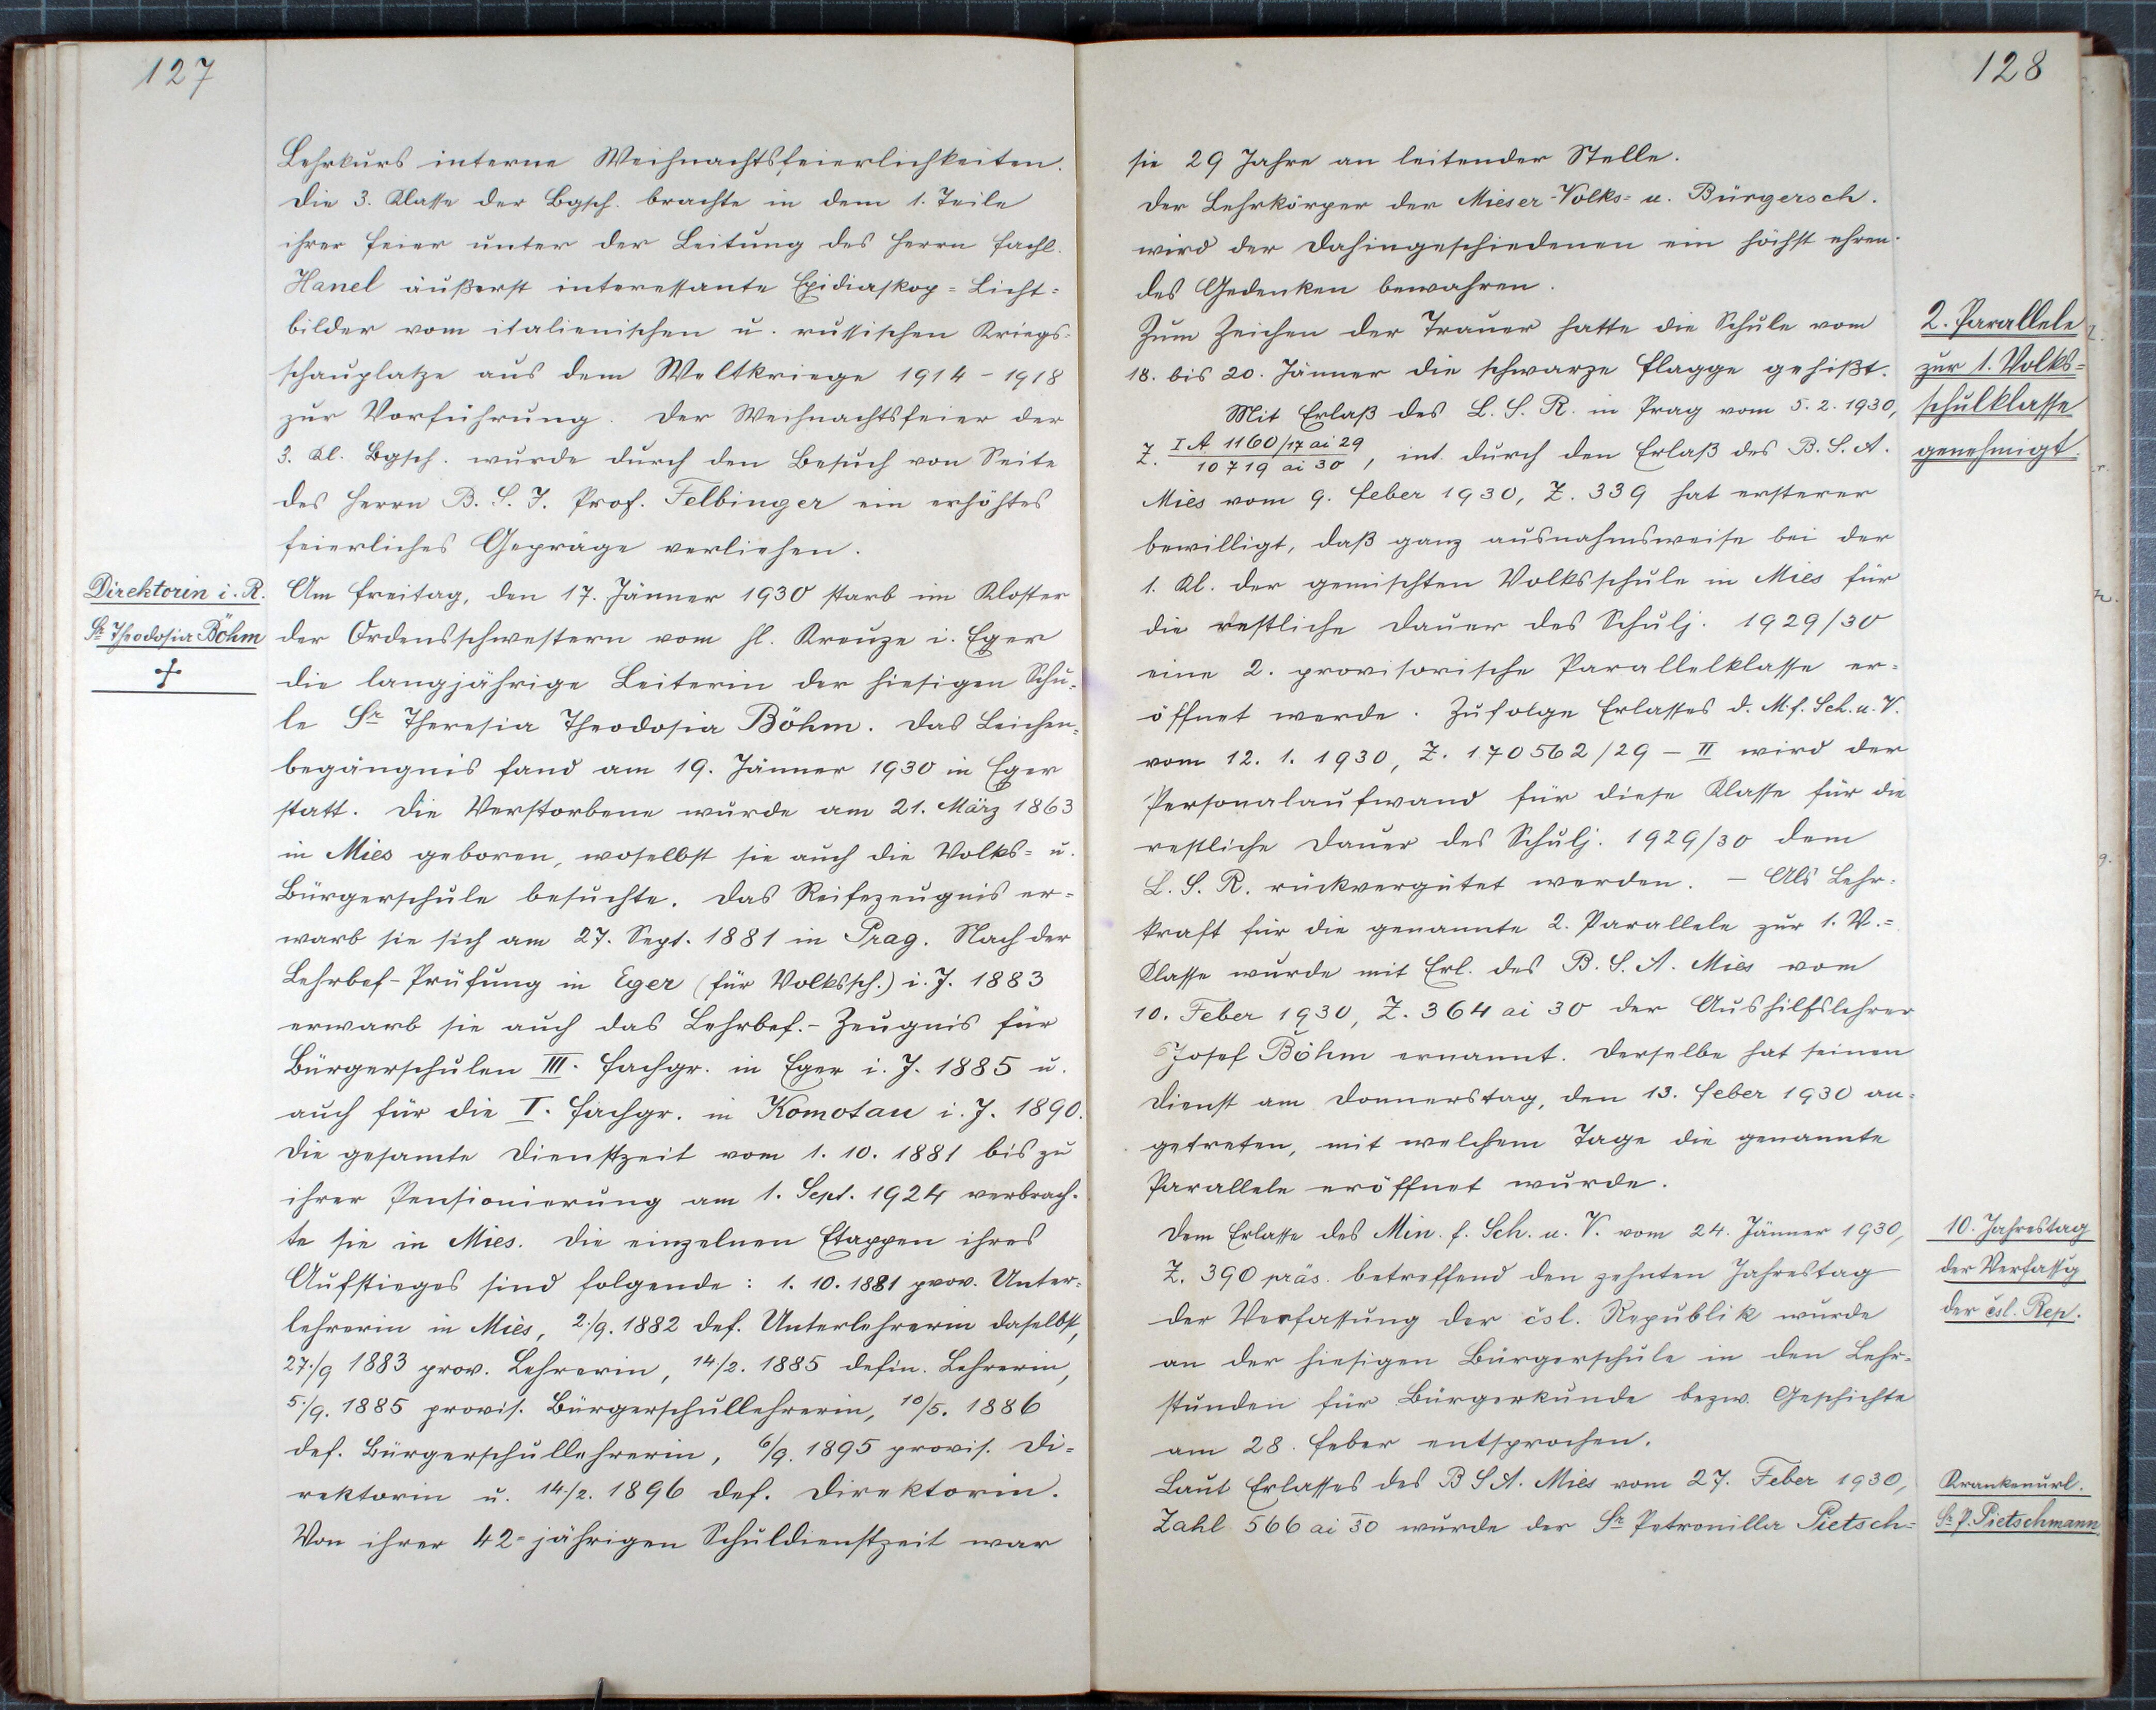 127
Lehrkurs interne Weihnachtsfeierlichkeiten.
Die 3. Klasse der Bgsch. brachte in dem 1. Teile
ihrer Feier unter der Leitung des Herrn Fachl.
Hanel äußerst interessante Epidiaskop-Licht-
bilder vom italienischen u. russischen Kriegs-
schauplatze aus dem Weltkriege 1914-1918
zur Vorführung. Der Weihnachtsfeier der
3. Kl. Bgsch. wurde durch den Besuch von Seite
des Herrn B. S. I. Prof. Felbinger ein erhöhtes
feierliches Gepräge verliehen.
Direktorin i. R.
Sr Theodosia Böhm
Am Freitag, den 17. Jänner 1930 starb im Kloster
der Ordensschwestern vom hl. Kreuze i. Eger
die langjährige Leiterin der hiesigen Schu-
le Sr Theresia Theodosia Böhm. Das Leichen-
begängnis fand am 19. Jänner 1930 in Eger
statt. Die Verstorbene wurde am 21. März 1863
in Mies geboren, woselbst sie auch die Volks- u.
Bürgerschule besuchte. Das Reifezeugnis er-
warb sie sich am 27. Sept. 1881 in Prag. Nach der
Lehrbef-Prüfung in Eger (für Volkssch.) i. J. 1883
erwarb sie auch das Lehrbef.-Zeugnis für
Bürgerschulen III. Fachgr. in Eger i. J. 1885 u.
auch für die I. Fachgr. in Komotau i. J. 1890.
Die gesamte Dienstzeit vom 1. 10. 1881 bis zu
ihrer Pensionierung am 1. Sept. 1924 verbrach-
te sie in Mies. Die einzelnen Etappen ihres
Aufstieges sind folgende: 1. 10. 1881 prov. Unter-
lehrerin in Mies, 2./9. 1882 def. Unterlehrerin daselbst,
27./9 1883 prov. Lehrerin, 14/2. 1885 defin. Lehrerin,
5./9. 1885 provis. Bürgerschullehrerin, 10/5. 1886
def. Bürgerschullehrerin, 6/9. 1895 provis. Di-
rektorin u. 14./2. 1896 def. Direktorin.
Von ihrer 42-jährigen Schuldienstzeit war
128
sie 29 Jahre an leitender Stelle.
Der Lehrkörper der Mieser-Volks- u. Bürgersch.
wird der Dahingeschiedenen ein höchst ehren-
des Gedenken bewahren.
Zum Zeichen der Trauer hatte die Schule vom
18. bis 20. Jänner die schwarze Flagge gehißt.
2. Parallele
zur 1. Volks-
schulklasse
genehmigt.
Mit Erlaß des L. S. R. in Prag vom 5. 2. 1930,
Z. I A 1160/17 ai 29 / 10719 ai 30, int. durch den Erlaß des B. S. A.
Mies vom 9. Feber 1930, Z. 339 hat ersterer
bewilligt, daß ganz ausnahmsweise bei der
1. Kl. der gemischten Volksschule in Mies für
die restliche Dauer des Schulj. 1929/30
eine 2. provisorische Parallelklasse er-
öffnet werde. Zufolge Erlasses d. M. f. Sch. u. V.
vom 12. 1. 1930, Z. 170562/29 - II wird der
Personalaufwand für diese Klasse für die
restliche Dauer des Schulj. 1929/30 dem
L. S. R. rückvergütet werden. - Als Lehr-
kraft für die genannte 2. Parallele zur 1. V.-
Klasse wurde mit Erl. des B. S. A. Mies vom
10. Feber 1930, Z. 364 ai 30 der Aushilfslehrer
Josef Böhm ernannt. Derselbe hat seinen
Dienst am Donnerstag, den 13. Feber 1930 an-
getreten, mit welchem Tage die genannte
Parallele eröffnet wurde.
10. Jahrestag
der Verfassg
der čsl. Rep.
Dem Erlasse des Min. f. Sch. u. V. vom 24. Jänner 1930,
Z. 390 präs. betreffend den zehnten Jahrestag
der Verfassung der čsl. Republik wurde
an der hiesigen Bürgerschule in den Lehr-
stunden für Bürgerkunde bezw. Geschichte
am 28. Feber entsprochen.
Krankenurl.
Sr P. Pietschmann
Laut Erlasses des B S A. Mies vom 27. Feber 1930,
Zahl 566 ai 30 wurde der Sr Petronilla Pietsch-